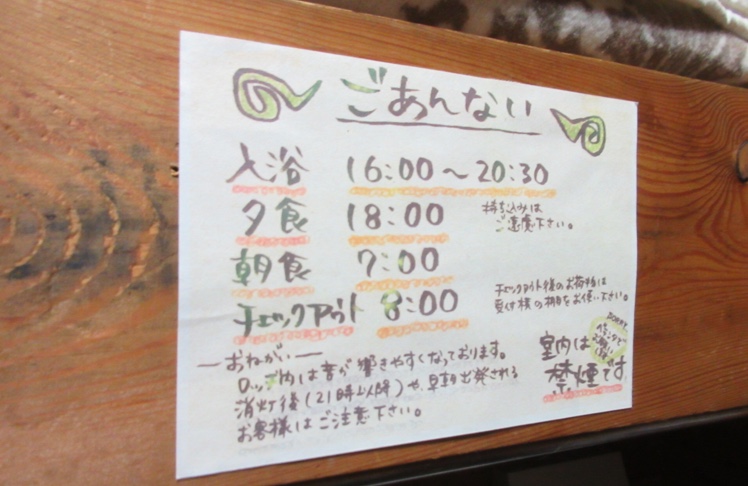 ごあんない
入浴 16:00〜20:30
夕食 18:00
持ち込みは
ご遠慮下さい。
朝食 7:00
チェックアウト 8:00
チェックアウト後のお荷物は
受付横の棚をお使い下さい。
室内は
禁煙です
―おねがい―
ロッヂ内は音が響きやすくなっております。
消灯後(21時以降)や、早朝出発される
お客様はご注意下さい。